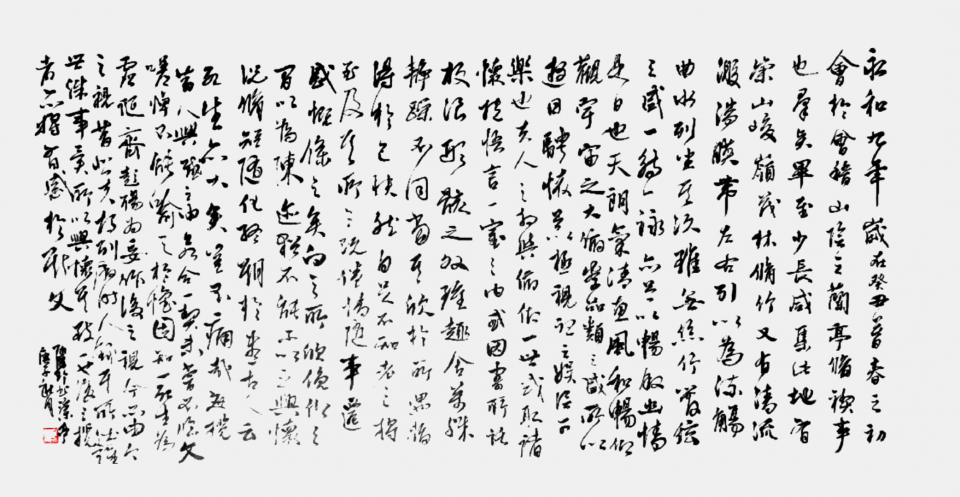 永和九年歲在癸丑暮春之初
會於會稽山陰之蘭亭脩禊事
也羣賢畢至少長咸集此地有
崇山峻領茂林脩竹又有清流
激湍映帶左右引以為流觴
曲水列坐其次雖無絲竹管弦
之盛一觴一詠亦足以暢敘幽情
是日也天朗氣清惠風和暢仰
觀宇宙之大俯察品類之盛所以
遊目騁懷足以極視聽之娛信可
樂也夫人之相與俯仰一世或取諸
懷抱悟言一室之內或因寄所託
放浪形骸之外雖趣舍萬殊
靜躁不同當其欣於所遇暫
得於己快然自足不知老之將
至及其所之既惓情隨事遷
感慨係之矣向之所欣俛仰之
間以為陳迹猶不能不以之興懷
況脩短隨化終期於盡古人云
死生亦大矣豈不痛哉每攬
昔人興感之由若合一契未嘗不臨文
嗟悼不能喻之於懷固知一死生為
虛誕齊彭殤為妄作後之視今亦由今
之視昔悲夫故列敘時人錄其所述雖
世殊事異所以興懷其致一也後之攬
者亦將有感於斯文